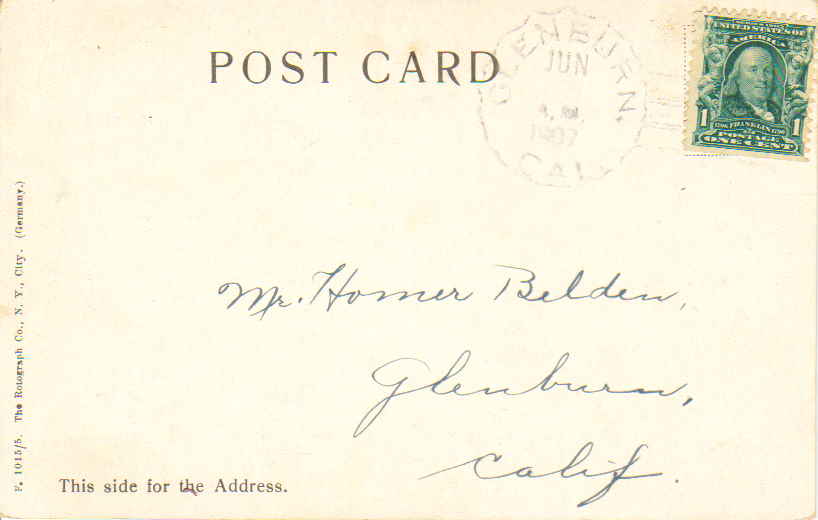 POST CARD
GLENBURN.
JUN
A.M.
1907
CAL
UNITED STATES OF
AMERICA
1 FRANKLIN 1
POSTAGE
ONE CENT
Mr. Homer Belden,
Glenburn,
Calif.
This side for the Address.
F. 1015/5. The Rotograph Co., N. Y., City. (Germany.)